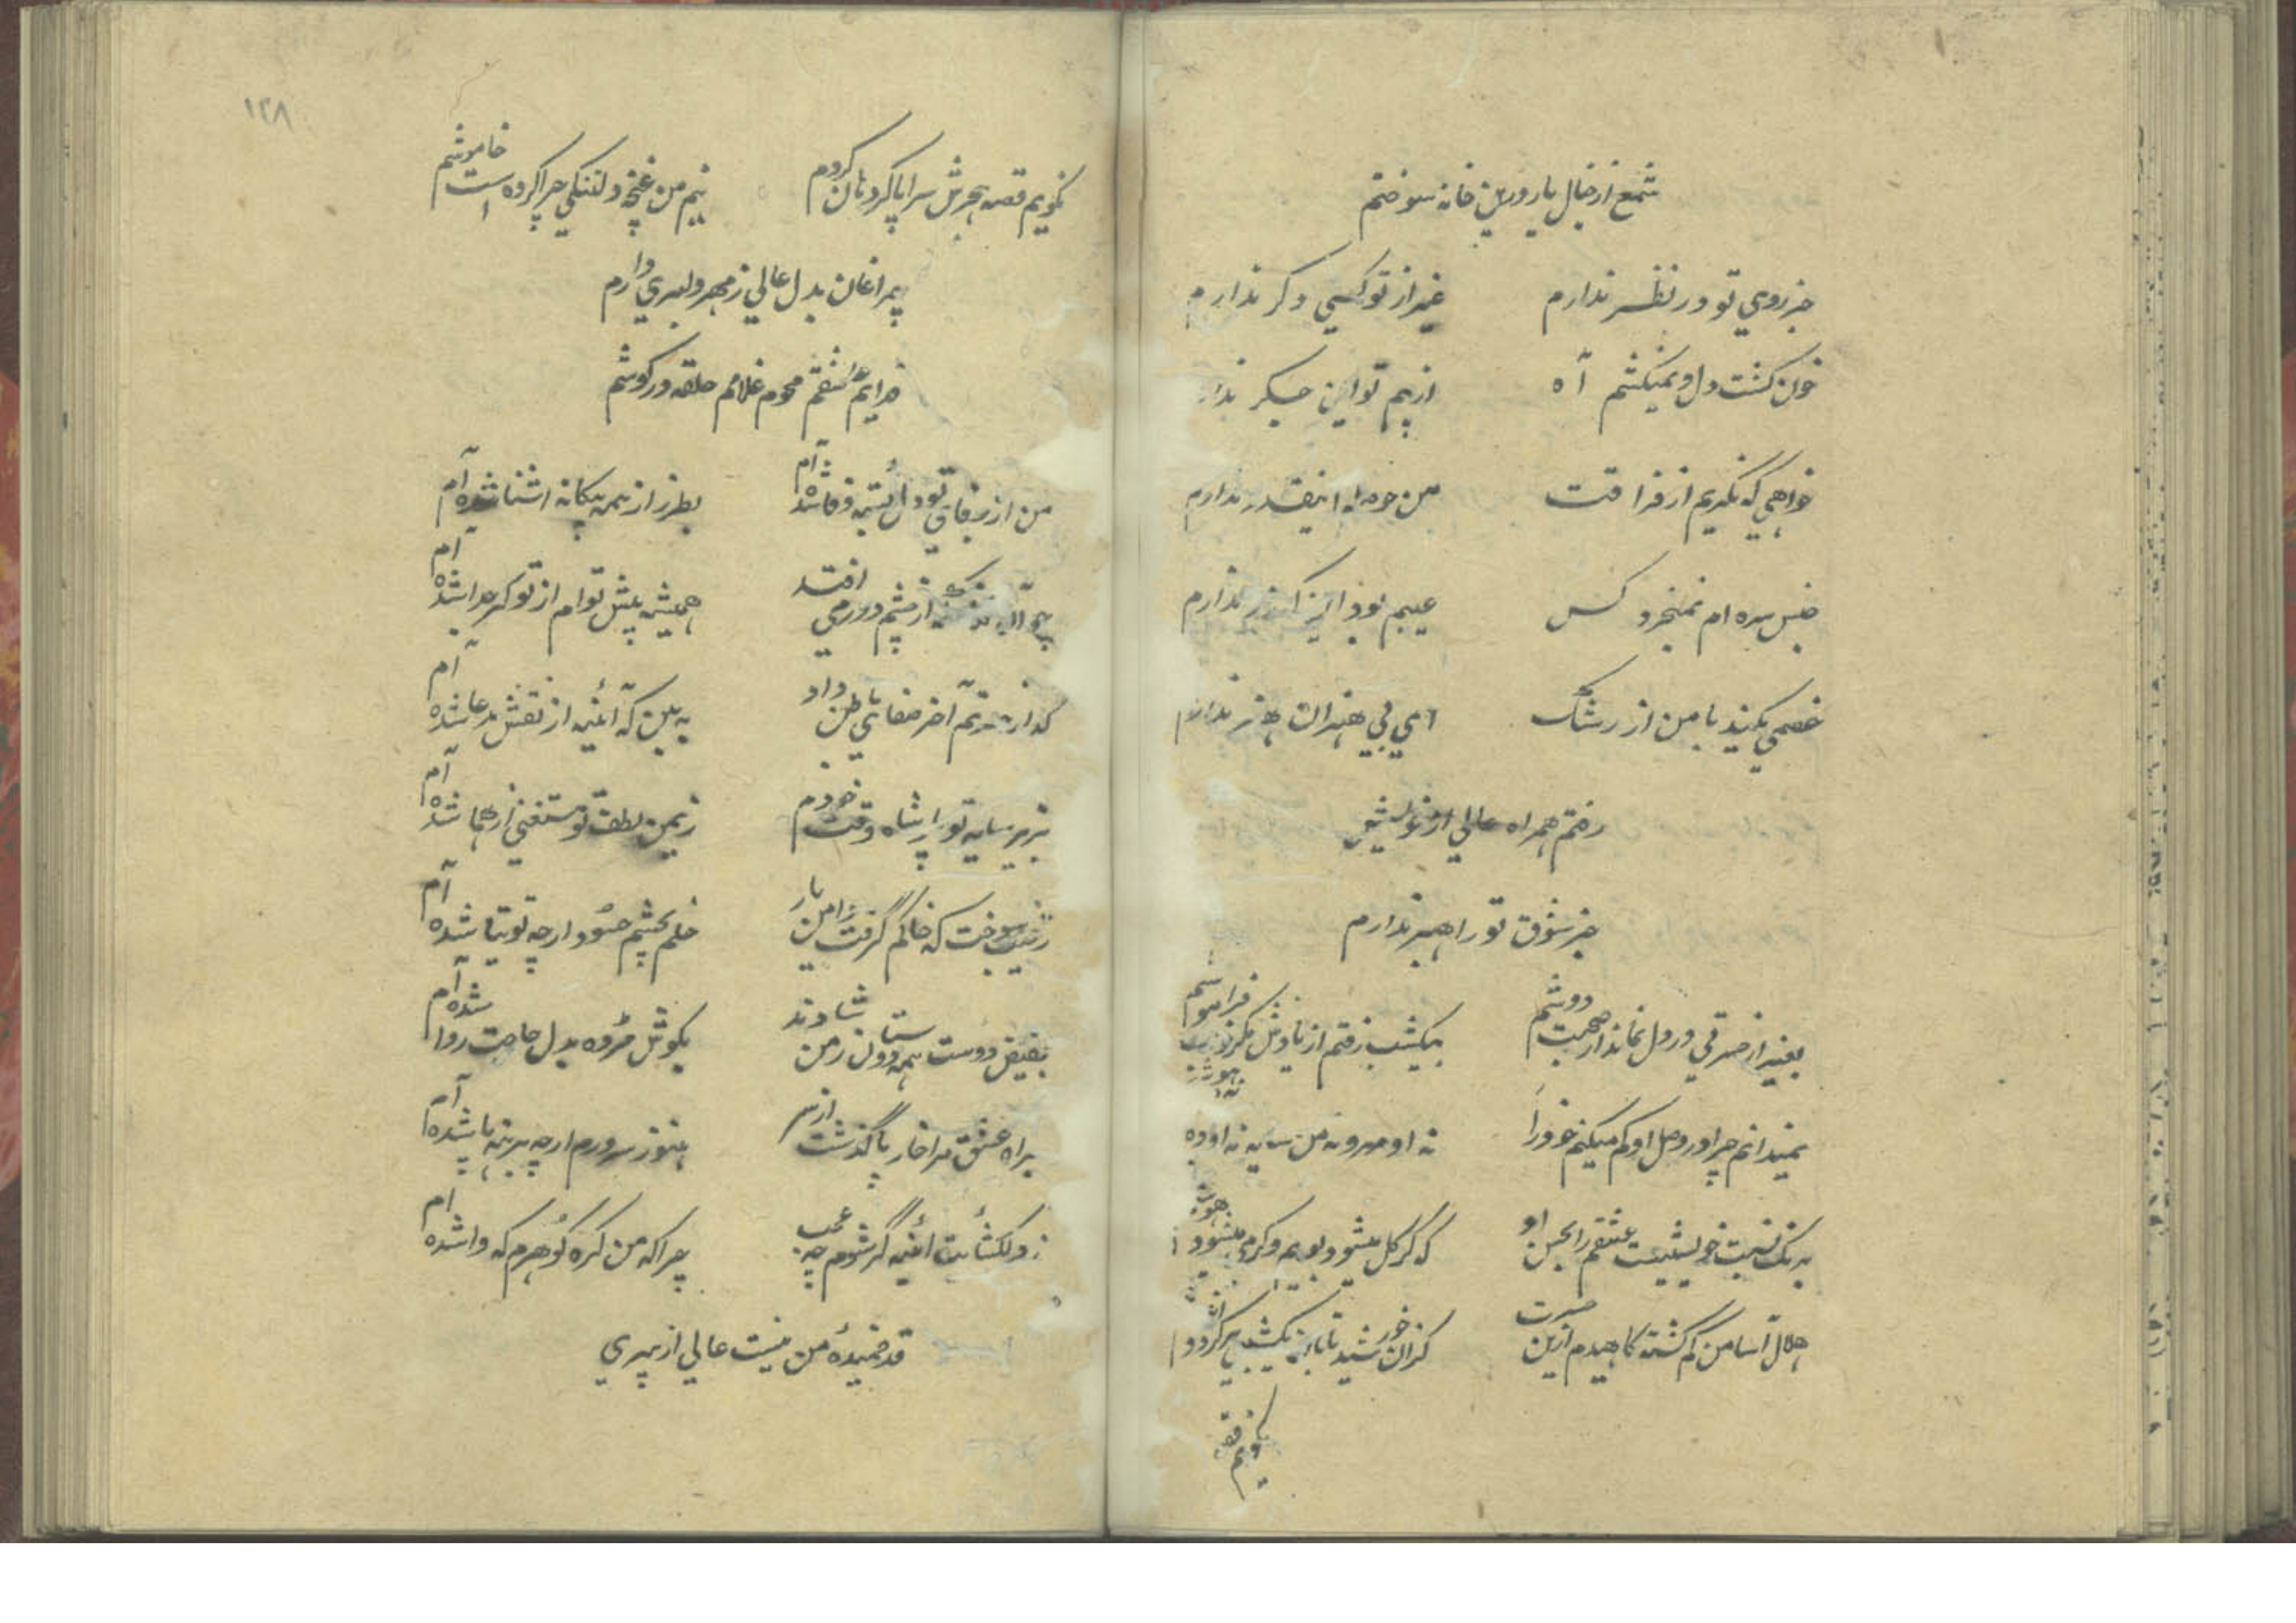 شمع از خیال یار درین خانه سوختم
جز روی تو در نظر ندارم غیر از تو کسی دکر ندارم
خون کشت دل و نمیکشم آه از بیم تو این جکر ندا
خواهی که نکریم از فراقت من حوصله اینقدر ندارم
جنس سره ام نمیخرد کس عیبم بود این که زر ندارم
خصمی نکنید با من از رشک ای بی هنران هنر ندارم
رفتم همراه عالی از خویش
جز شوق تو راهبر ندارم
بغیر از حرفی در دل نماند از صحبت دوشم بیکشب رفتم از یادش فراموشم
نمیدانم چرا در وصل او کم میکنم خود را نه او مهر و نه من سایه نه او
به یک نسبت خویشیست عشقم را بحسن او که کر کل میشود بویم و کر می میشود
هلال آسا من کم کشته کاهیدم ازین حسرت کزان خورشید تابان یکشبی پر کردد
نکویم قصه
۱۲۸
نکویم قصه هجرش سراپا کرد نان کردم نیم من غنچه دلتنکی چرا کرده است خاموشم
چراغان بدل عالی ز مهر دلبری دارم
فدایم عاشقم محوم غلامم حلقه در کوشم
من از جفای تو دل بسته وفا شده ام بطرز از همه بیکانه اشنا شده ام
از چشم دور می افتد همیشه پیش توام از تو کر جدا شده ام
کداز حیرتم آخر صفای باطن داد به بین که آئینه از نقش مدعا شده ام
بزیر سایه تو پادشاه وقت خودم ز یمن لطف تو مستغنی از هما شده ام
سوخت که خاکم گرفت دامن یار خلم بچشم حسود ار چه توتیا شده ام
بفیض دوست همه دادند بکوش مژده بدل حاجت روا شده ام
براه عشق مرا خار پا گذشت از سر هنوز سرورم ار چه برهنه پا شده ام
ز دلکشائیت آئینه گر شوم چه عجب چرا که من کره کوهرم که وا شده ام
قد خمیدهٔ من نیست عالی از پیری